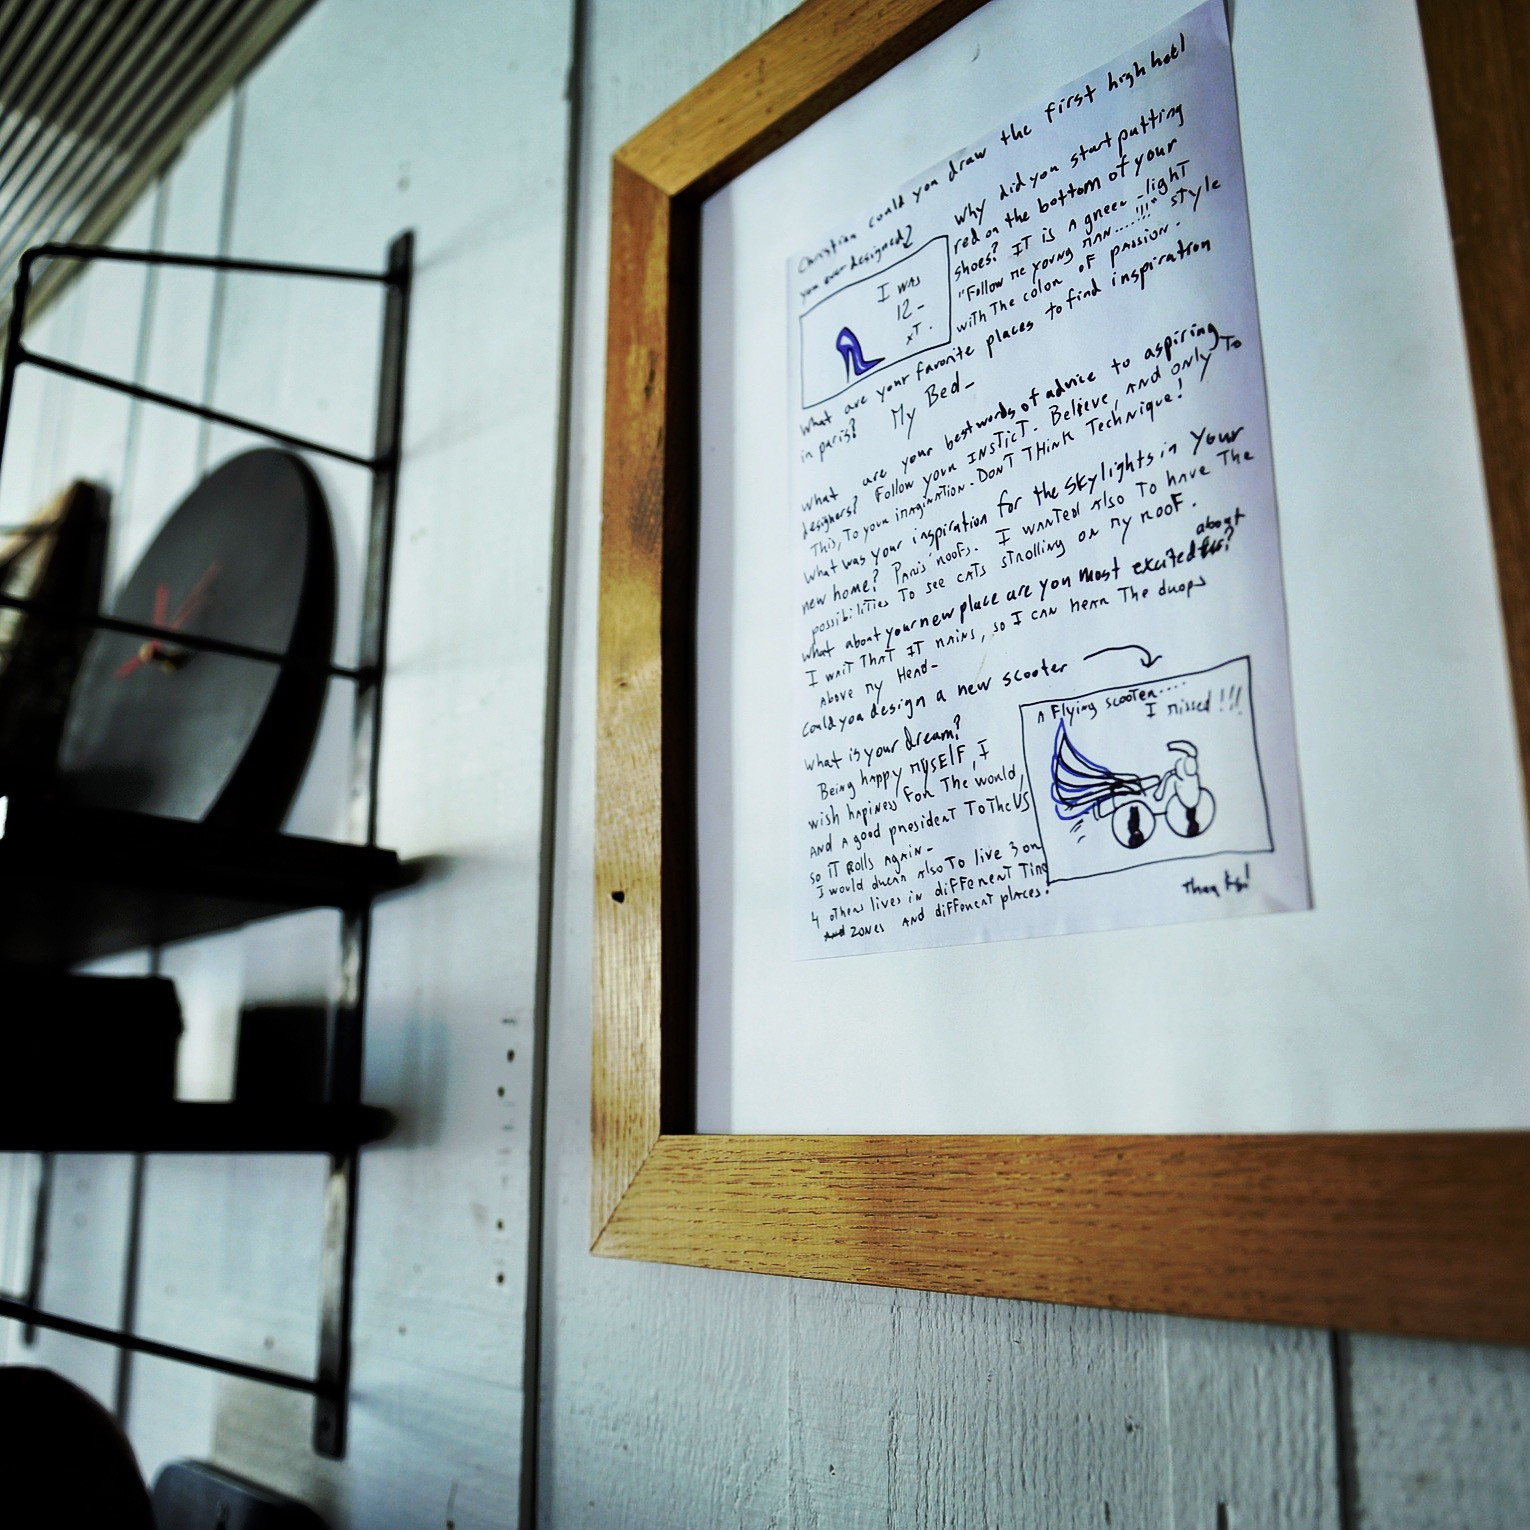 Christian could you draw the first high heel
you ever designed?
I was
12 -
xT.
Why did you start putting
red on the bottom of your
shoes? IT is A green - light
"Follow me young man.....!!!" style
with The color of passion.
What are your favorite places to find inspiration
in paris? My Bed -
What are your best words of advice to aspiring
designers? Follow your INSTicT. Believe, and only To
This, To your imagination. Don'T Think Technique!
What was your inspiration for the skylights in your
new home? Paris' roofs. I wanted also To have The
possibilities To see cats strolling on my roof.
What about your new place are you most excited about
?
I wait That IT rains, so I can hear The drops
above my Head -
Could you design a new scooter
A Flying scooter....
I missed!!!
What is your dream?
Being happy myself, I
wish hapiness For The would,
and a good president To The US
so iT Rolls again -
I would dream also To live 3 or
4 others lives in different Time
and zones and different places.
Thank s!